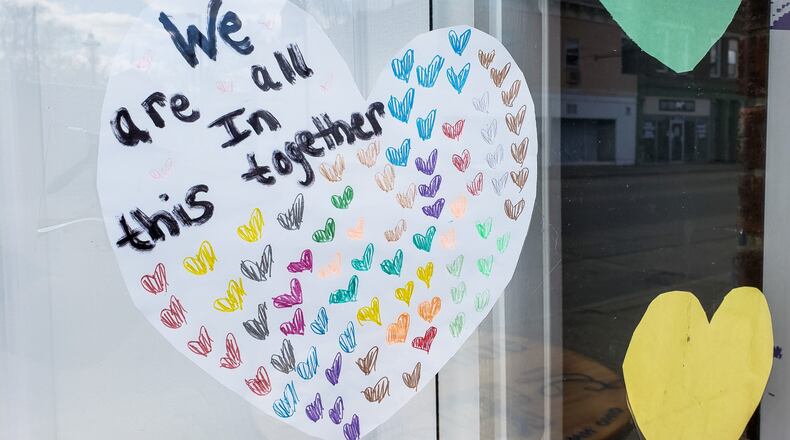 We
are all
In
this together